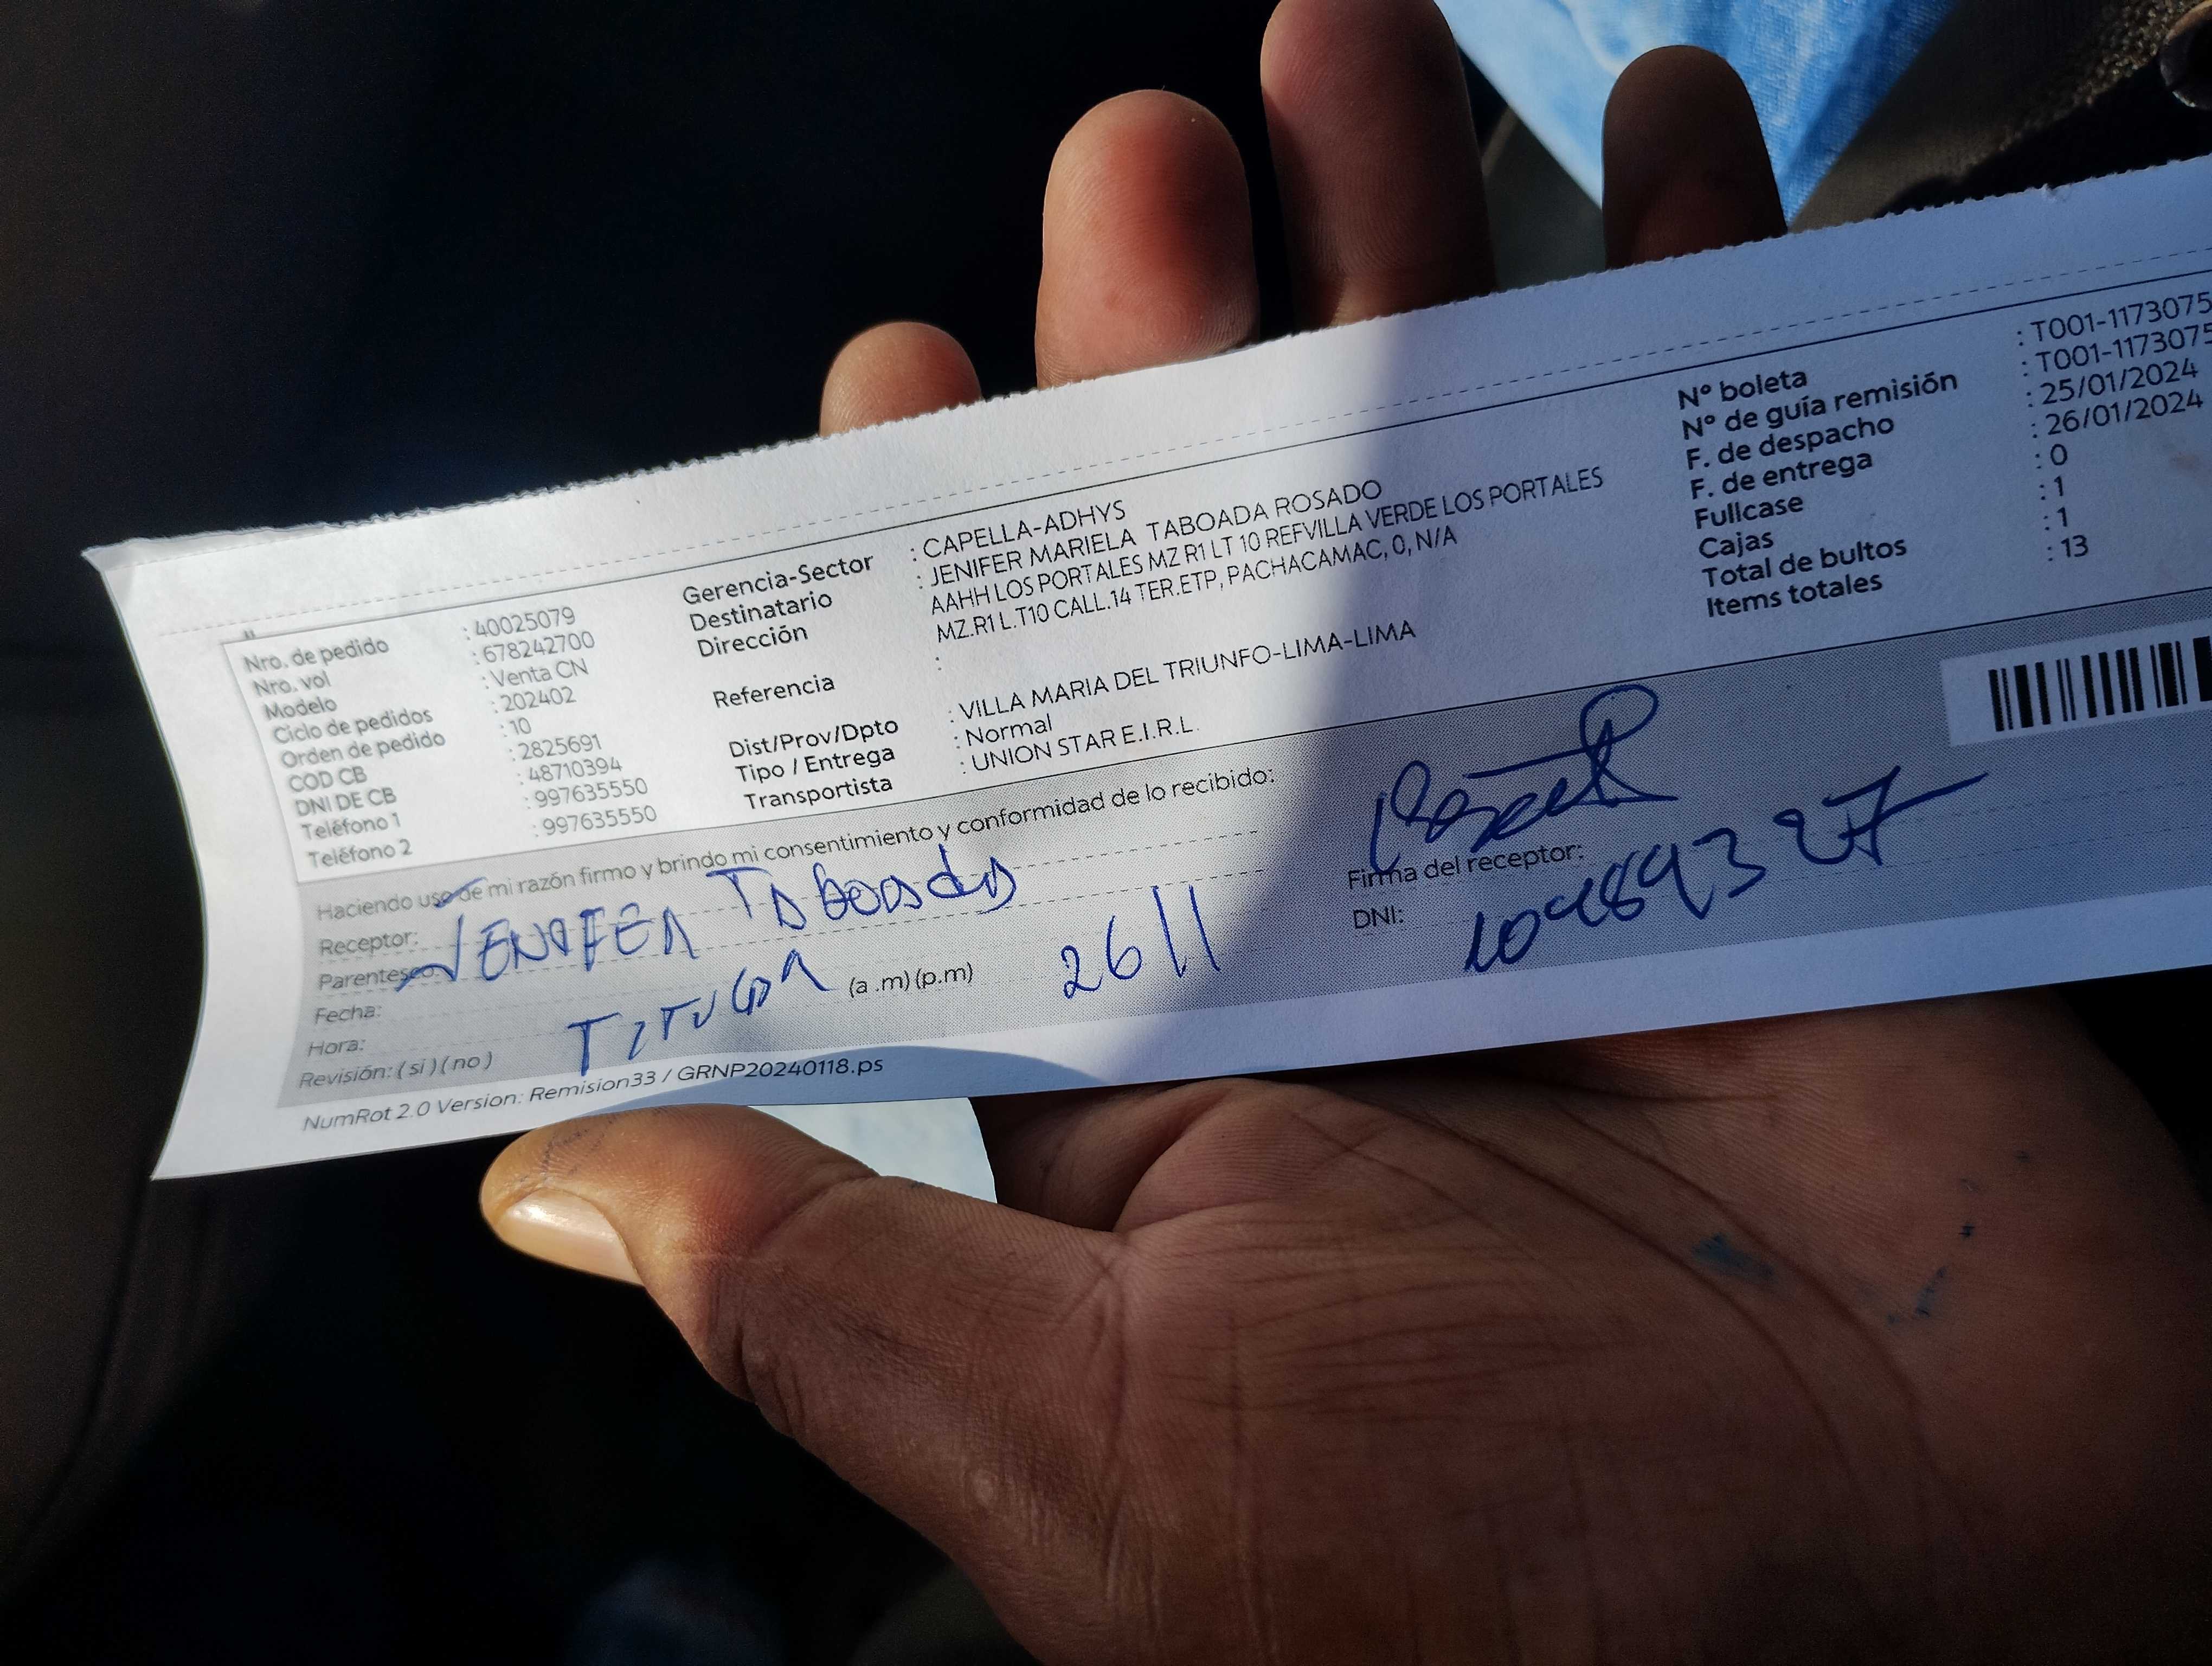 Nro. de pedido : 40025079
Nro. vol : 678242700
Modelo : Venta CN
Ciclo de pedidos : 202402
Orden de pedido : 10
COD CB : 2825691
DNI DE CB : 48710394
Teléfono 1 : 997635550
Teléfono 2 : 997635550
Gerencia-Sector : CAPELLA-ADHYS
Destinatario : JENIFER MARIELA TABOADA ROSADO
Dirección AAHH LOS PORTALES MZ R1 LT 10 REFVILLA VERDE LOS PORTALES
MZ.R1 L.T10 CALL.14 TER.ETP, PACHACAMAC, 0, N/A
Referencia :
Dist/Prov/Dpto : VILLA MARIA DEL TRIUNFO-LIMA-LIMA
Tipo / Entrega : Normal
Transportista : UNION STAR E.I.R.L.
Nº boleta : T001-1173075
Nº de guía remisión : T001-1173075
F. de despacho : 25/01/2024
F. de entrega : 26/01/2024
Fullcase : 0
Cajas : 1
Total de bultos : 1
Items totales : 13
Haciendo uso de mi razón firmo y brindo mi consentimiento y conformidad de lo recibido:
Receptor: JENIFER TABOADA
Parentesco:
Fecha:
Hora: (a .m) (p.m) 26 11
Revisión: ( si ) ( no ) TITUGAR
Firma del receptor:
DNI:
NumRot 2.0 Version: Remision33 / GRNP20240118.ps